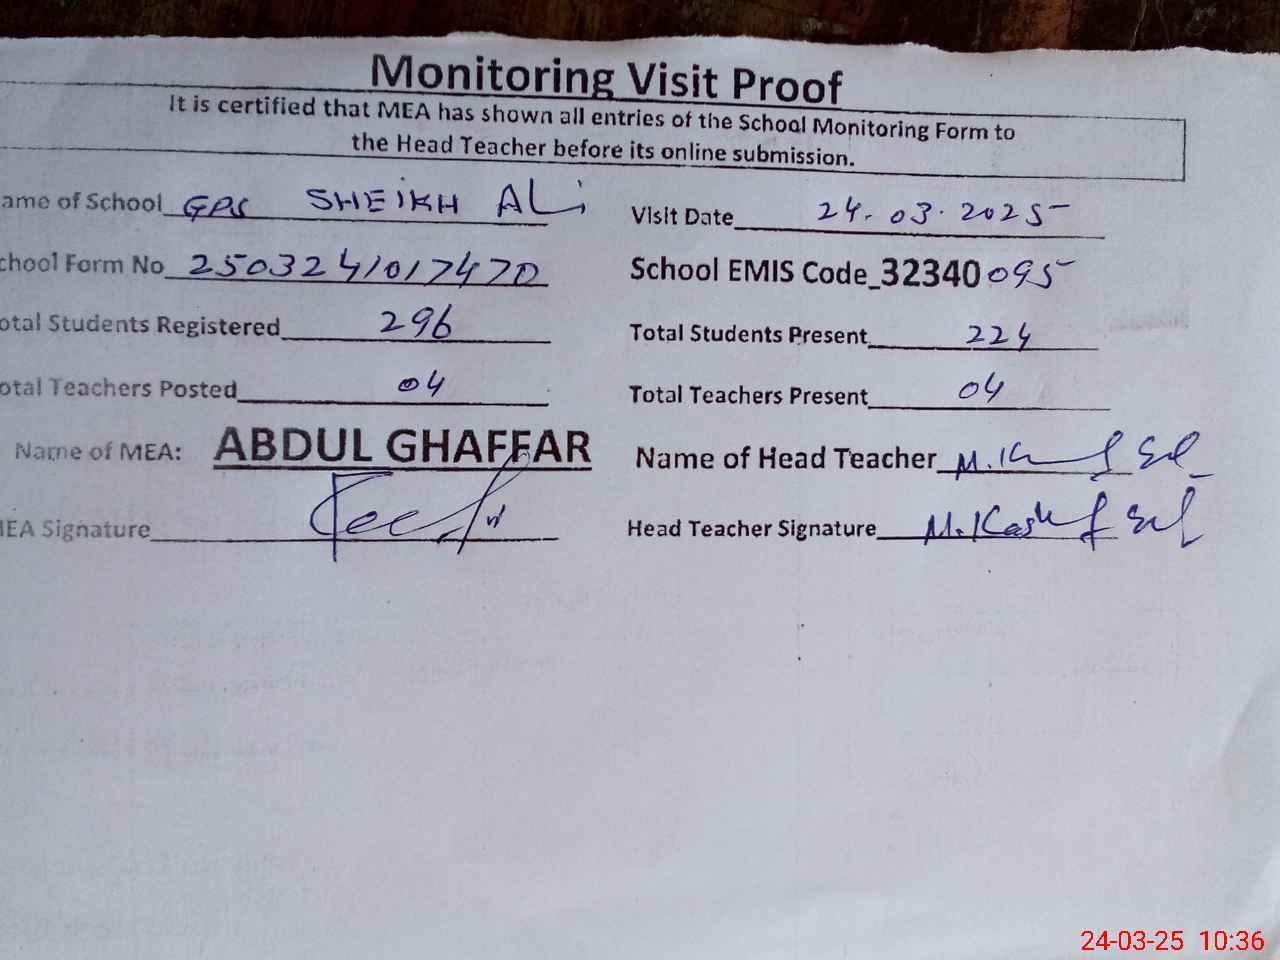 Monitoring Visit Proof
It is certified that MEA has shown all entries of the School Monitoring Form to
the Head Teacher before its online submission.
ame of School GPS SHEIKH ALi Visit Date 24.03.2025
chool Form No 250324101747D School EMIS Code_32340095
otal Students Registered 296 Total Students Present 224
otal Teachers Posted 04 Total Teachers Present 04
Name of MEA: ABDUL GHAFFAR Name of Head Teacher M.
MEA Signature Head Teacher Signature M. Kash
24-03-25 10:36